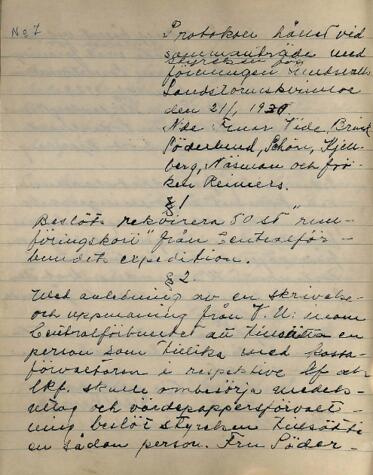 No 7
Protokoll hållet vid
sammanträde med
styrelsen för
föreningen Sundsvalls
Landstormskvinnor
den 21/1 1930
Nde: Fruar Vide, Brink
Söderlund, Schön, Kjell-
berg, Näsman och frö-
ken Reimers.
§ 1
Beslöts rekvirera 50 st "rum-
föringskort" från Centralför-
bundets expedition.
§ 2
Med anledning av en skrivelse
och uppmaning från V. U. inom
Centralförbundet att tillsätta en
person som tillika med kassa-
förvaltaren i respektive lf och
lkf. skulle ombesörja medels-
uttag och värdepappersförvalt-
ning beslöt styrelsen tillsätta
en sådan person. Fru Söder-